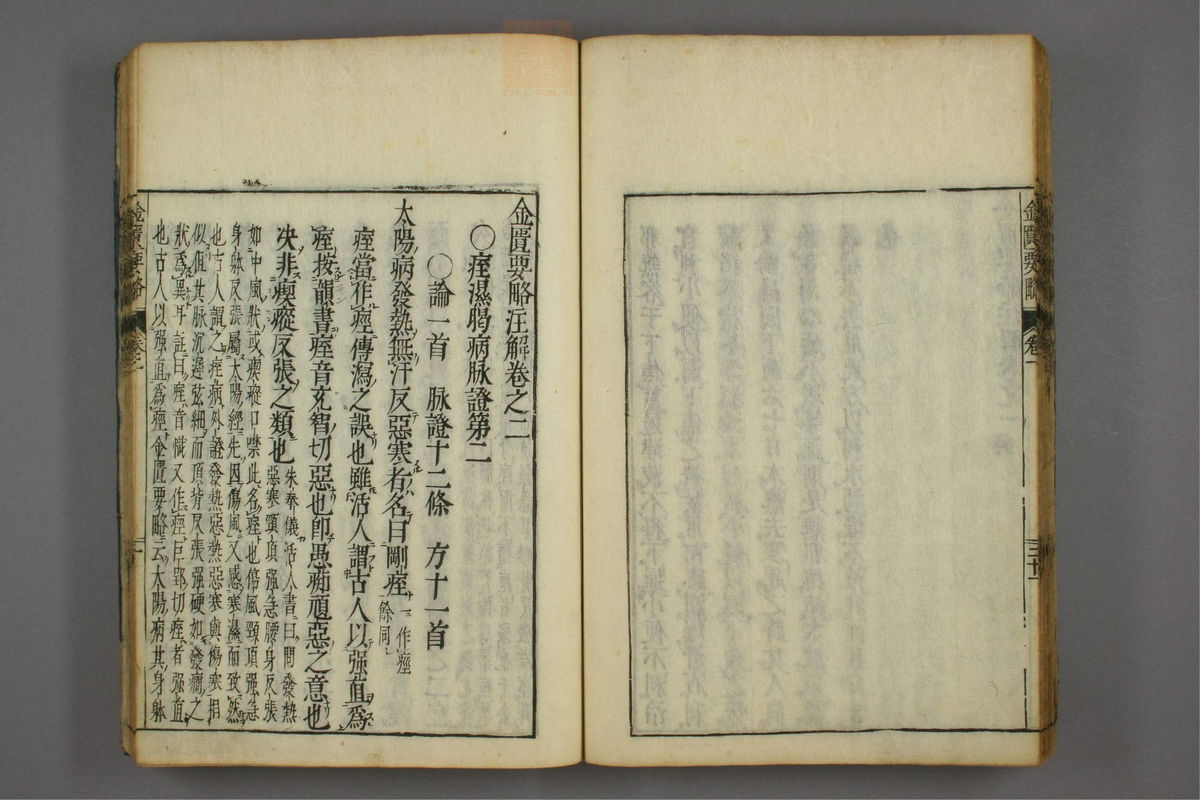 金匱要略 卷一 三十一
金匱要略注解卷之二
〇痓濕暍病脉證第二
〇論一首 脉證十二條 方十一首
太陽病發熱無汗反惡寒者名曰剛痓 一作痙餘同
痓當作痙傳瀉之誤也雖活人謂古人以强直爲
痓按韻書痓音充智切惡也卽愚痴頑惡之意也
决非瘈瘲反張之類也 朱奉儀活人書曰問發熱
惡寒頸項强急腰身反張
如中風狀或瘈瘲口噤此名痓也傷風頸項强急
身躰反張屬太陽經先因傷風又感寒濕而致然
也古人謂之痓病外證發熱惡熱惡寒與傷寒相
似但其脉沉遲弦細而項背反張强硬如發癇之
狀爲異耳註曰痓音熾又作痙巨郢切痓者强直
也古人以强直爲痙金匱要略云太陽病其身躰
金匱要略 卷之二 一